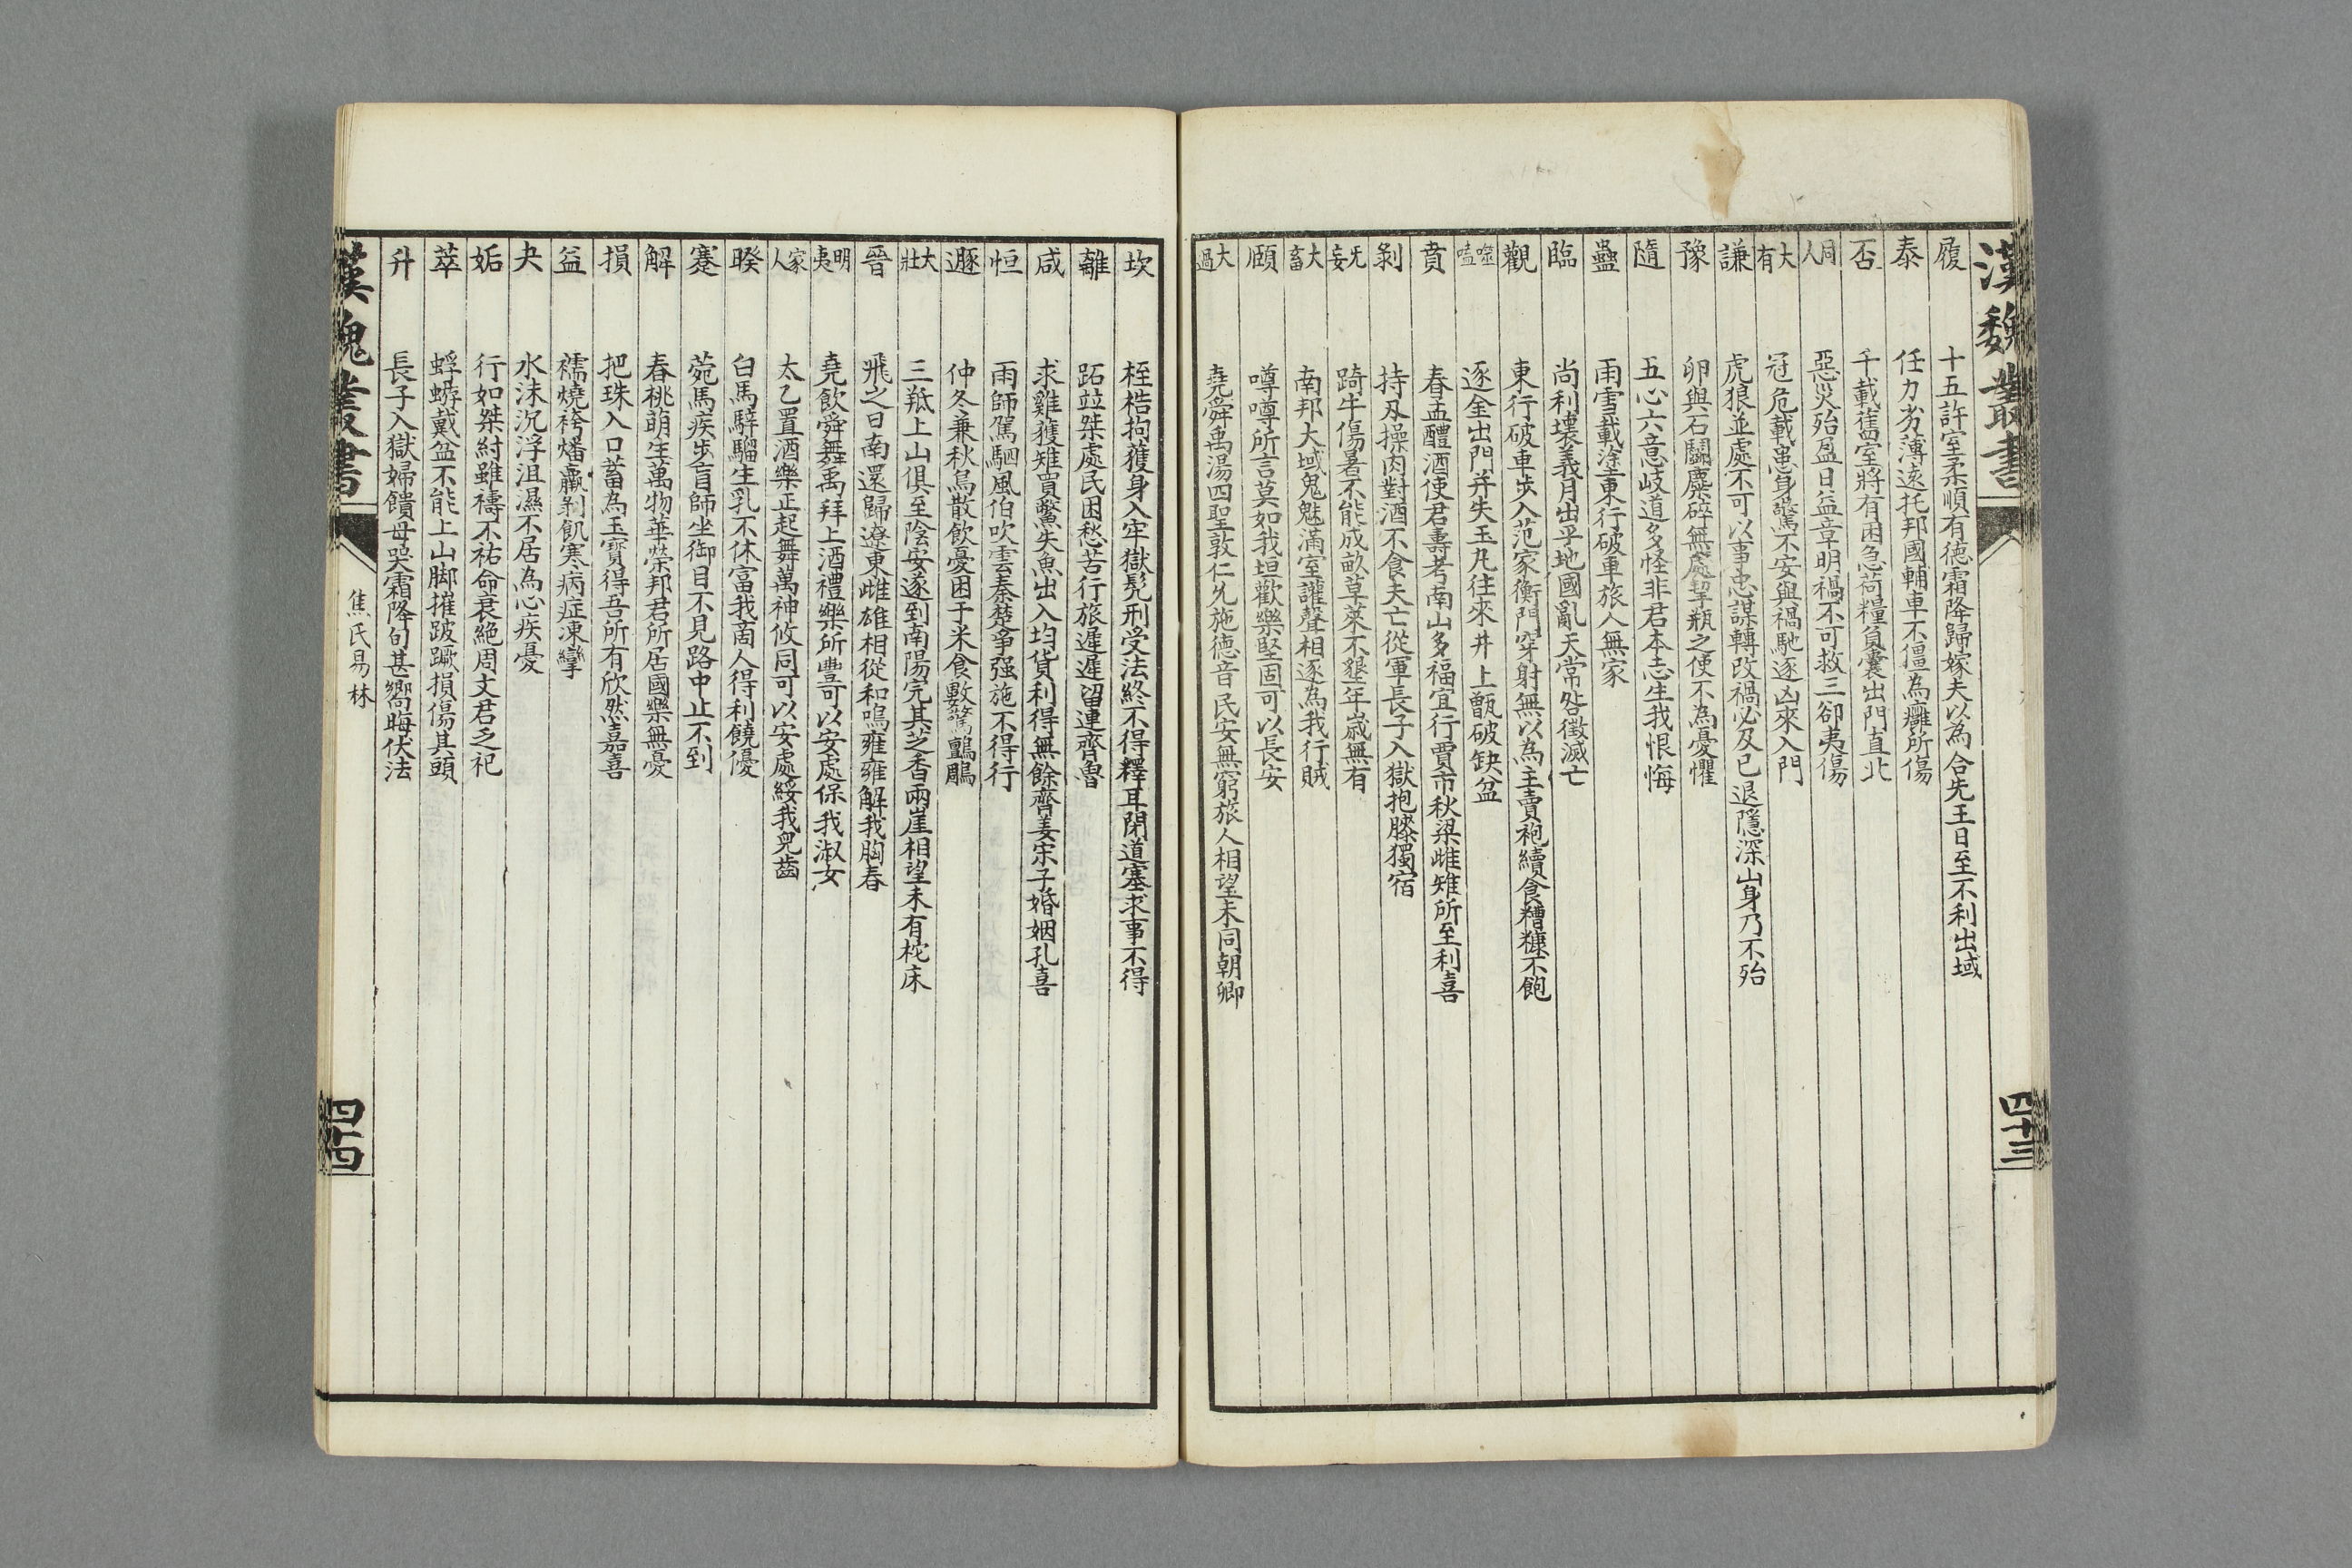 漢魏叢書
四十三
履 十五許室柔順有德霜降歸嫁夫以為合先王日至不利出域
泰 任力劣薄遠托邦國輔車不僵為癰所傷
否 千載舊室將有困急荷糧負囊出門直北
同人 惡災殆盈日益章明禍不可救三郤夷傷
大有 冠危戴患身驚不安與禍馳逐凶來入門
謙 虎狼並處不可以事忠謀轉改禍必及已退隱深山身乃不殆
豫 卵與石鬬麋碎無處挈瓶之使不為憂懼
隨 五心六意岐道多怪非君本志生我恨悔
蠱 雨雪載塗東行破車旅人無家
臨 尚利壞義月出乎地國亂天常咎徵滅亡
觀 東行破車步入范家衡門穿射無以為主賣袍續食糟糠不飽
噬嗑 逐金出門并失玉凡往來井上甑破缺盆
賁 春盂醴酒使君壽考南山多福宜行賈市秋梁雌雉所至利喜
剝 持刄操肉對酒不食夫亡從軍長子入獄抱膝獨宿
无妄 踦牛傷暑不能成畝草萊不墾年歲無有
大畜 南邦大域鬼魅滿室讙聲相逐為我行賊
頤 噂噂所言莫如我垣歡樂堅固可以長安
大過 堯舜禹湯四聖敦仁允施德音民安無窮旅人相望未同朝卿
坎 桎梏拘獲身入牢獄髡刑受法終不得釋耳閉道塞求事不得
離 跖竝桀處民困愁苦行旅遲遲留連齊魯
咸 求雞獲雉買鱉失魚出入均貨利得無餘齊姜宋子婚姻孔喜
恒 雨師駕駟風伯吹雲秦楚爭强施不得行
遯 仲冬兼秋鳥散飲憂困于米食數驚鸇鵰
大壯 三羝上山俱至陰安遂到南陽完其芝香兩崖相望未有枕床
晉 飛之日南還歸遼東雌雄相從和鳴雍雍解我胸春
明夷 堯飲舜舞禹拜上酒禮樂所豐可以安處保我淑女
家人 太乙置酒樂正起舞萬神攸同可以安處綏我皃齒
暌 白馬騂騮生乳不休富我啇人得利饒優
蹇 菀馬疾步盲師坐御目不見路中止不到
解 春桃萌生萬物華榮邦君所居國樂無憂
損 把珠入口蓄為玉寶得吾所有欣然嘉喜
益 襦燒袴燔羸剝飢寒病症凍攣
夬 水沫沉浮沮濕不居為心疾憂
姤 行如桀紂雖禱不祐命衰絕周文君乏祀
萃 蜉蝣戴盆不能上山脚摧跛蹶損傷其頭
升 長子入獄婦饋母哭霜降旬甚嚮晦伏法
漢魏叢書
焦氏易林
四十四